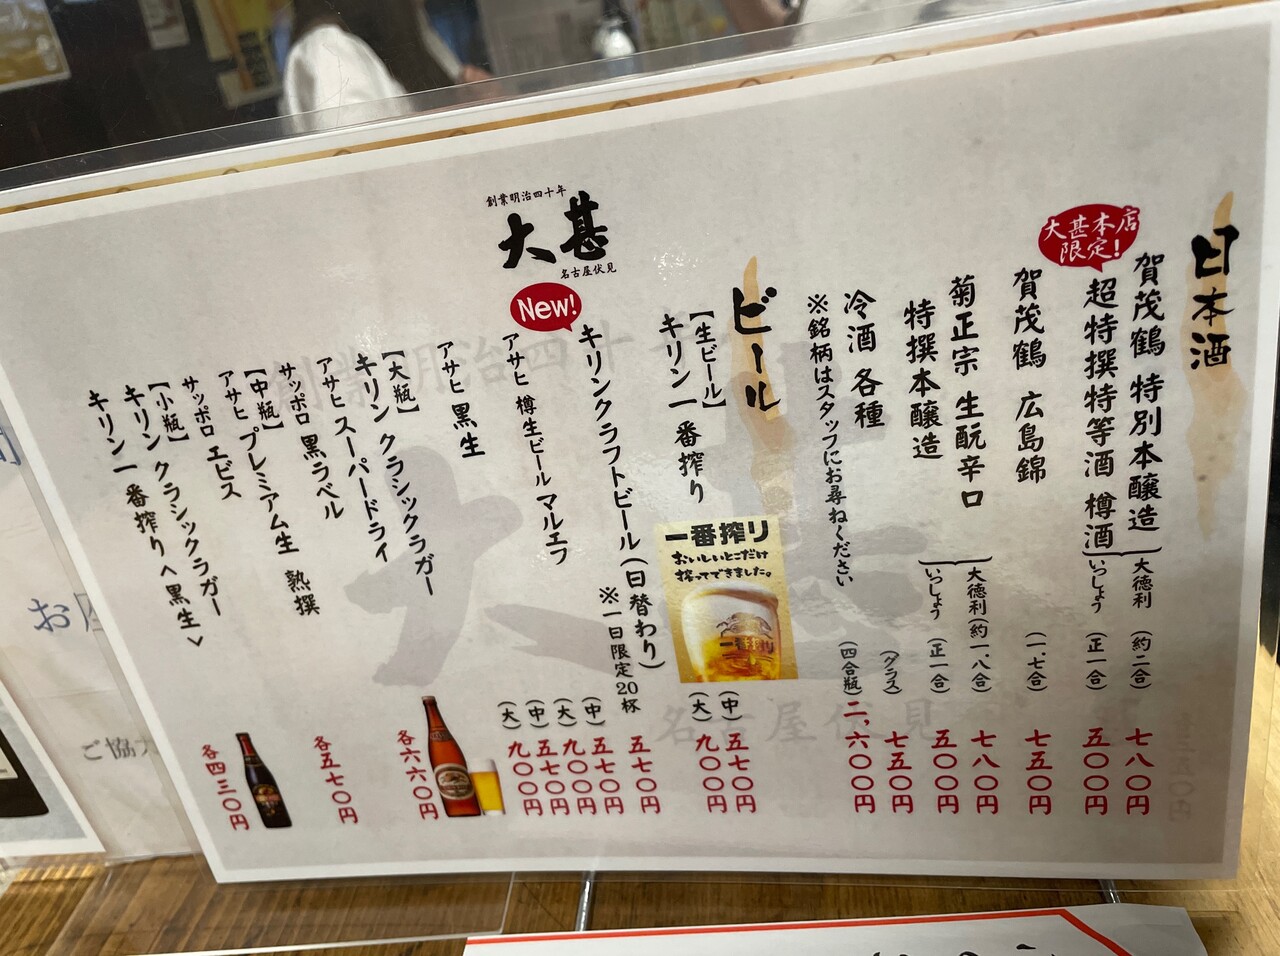 日本酒
大甚本店
限定!
賀茂鶴 特別本醸造
超特撰特等酒 樽酒
大徳利 (約二合) 七八〇円
いっしょう (正一合) 五〇〇円
賀茂鶴 広島錦 (一、七合) 七五〇円
菊正宗 生酛辛口
特撰本醸造
大徳利(約一、八合) 七八〇円
いっしょう (正一合) 五〇〇円
冷酒 各種
(グラス) 七五〇円
(四合瓶) 二、六〇〇円
※銘柄はスタッフにお尋ねください
ビール
【生ビール】
キリン一番搾り
(中) 五七〇円
(大) 九〇〇円
一番搾り
おいしいとこだけ
搾ってできました。
一番搾り
キリンクラフトビール(日替わり) 五七〇円
※一日限定20杯
New!
アサヒ 樽生ビール マルエフ
(中) 五七〇円
(大) 九〇〇円
アサヒ 黒生
(中) 五七〇円
(大) 九〇〇円
【大瓶】
キリン クラシックラガー
アサヒ スーパードライ
サッポロ 黒ラベル
各六六〇円
【中瓶】
アサヒ プレミアム生 熟撰
サッポロ エビス
各五七〇円
【小瓶】
キリン クラシックラガー
キリン一番搾り<黒生>
各四三〇円
創業明治四十年
大甚
名古屋伏見
創業明治四十年
大甚
名古屋伏見
ご協力